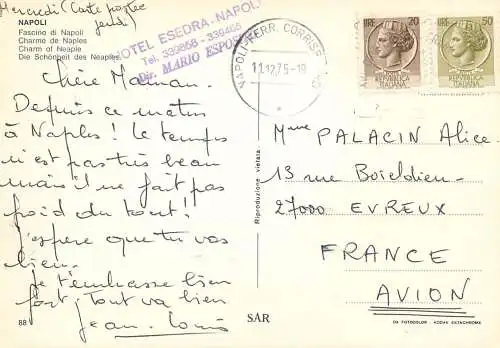 Mercredi (Carte postée
jeudi)
NAPOLI
Fascino di Napoli
Charme de Naples
Charm of Neaple
Die Schönheit des Neaples
HOTEL ESEDRA-NAPOLI
Tel. 339858 - 339465
Dir. MARIO ESPOS
NAPOLI FERR. CORRISP
11.12.75-19
LIRE 20
REPUBBLICA
ITALIANA
LIRE 50
REPUBBLICA
ITALIANA
Chère Maman.
Depuis ce matin
à Naples! Le temps
n'est pas très beau
mais il ne fait pas
froid du tout!
J'espère que tu vas
bien.
Je t'embrasse bien
fort. Tout va bien
Jean-Louis
88
Riproduzione vietata
SAR
Mme PALACIN Alice
13 rue Boieldieu
27000 EVREUX
FRANCE
AVION
DA FOTOCOLOR KODAK EKTACHROME